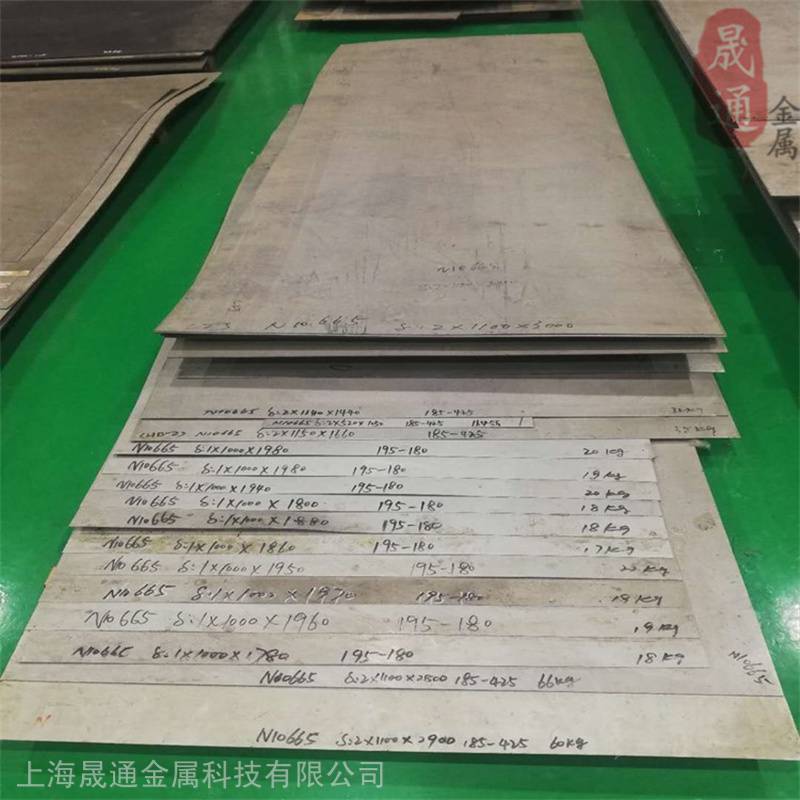 晟通
金属
N10665
N10665 δ:2×1100×3000
N10665 δ:2×1140×1440 185-425
N10665 δ:2×520×1150 185-425
N10665 δ:2×1150×1660 185-425 35KG
N10665 δ:1×1000×1980 195-180 20Kg
N10665 δ:1×1000×1980 195-180 19Kg
N10665 δ:1×1000×1940 195-180 20Kg
N10665 δ:1×1000×1800 195-180 18Kg
N10665 δ:1×1000×1880 195-180 18Kg
N10665 δ:1×1000×1860 195-180 17Kg
N10665 δ:1×1000×1950 195-180 22Kg
N10665 δ:1×1000×1970 195-180 19Kg
N10665 δ:1×1000×1960 195-180 19Kg
N10665 δ:1×1000×1780 195-180 18Kg
N10665
N10665 δ:2×1100×2800 185-425 66Kg
N
N10665 δ:2×1100×2900 185-425 60Kg
上海晟通金属科技有限公司